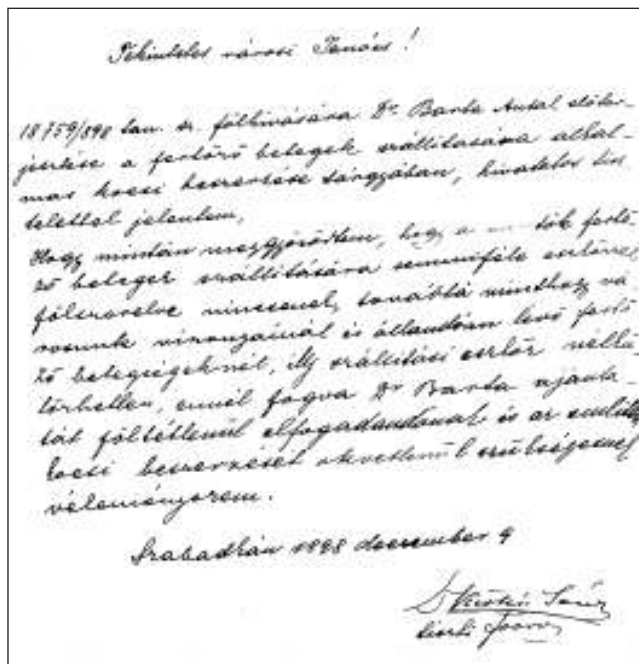 Tekintetes városi Tanács!
18759/898 tan. sz. fölhivására Dr. Barta Antal előter-
jesztése a fertőző betegek szállitására alkal-
mas kocsi beszerzése tárgyában, hivatalos tisz
telettel jelentem,
Hogy miután meggyőződtem, hogy a fertő-
ző beteg szállitására semmiféle eszközzel
fölszerelve nincsenek, továbbá minthogy vá
rosunk viszonyainál és állandóan levő fertő
ző betegségeknél, ily szállitási eszköz nélkü
lözhetlen, ennél fogva Dr Barta ajánla-
tát föltétlenül elfogadandónak és az emlitett
kocsi beszerzését okvetlenül szükségesnek
véleményezem.
Szabadkán 1898 december 9